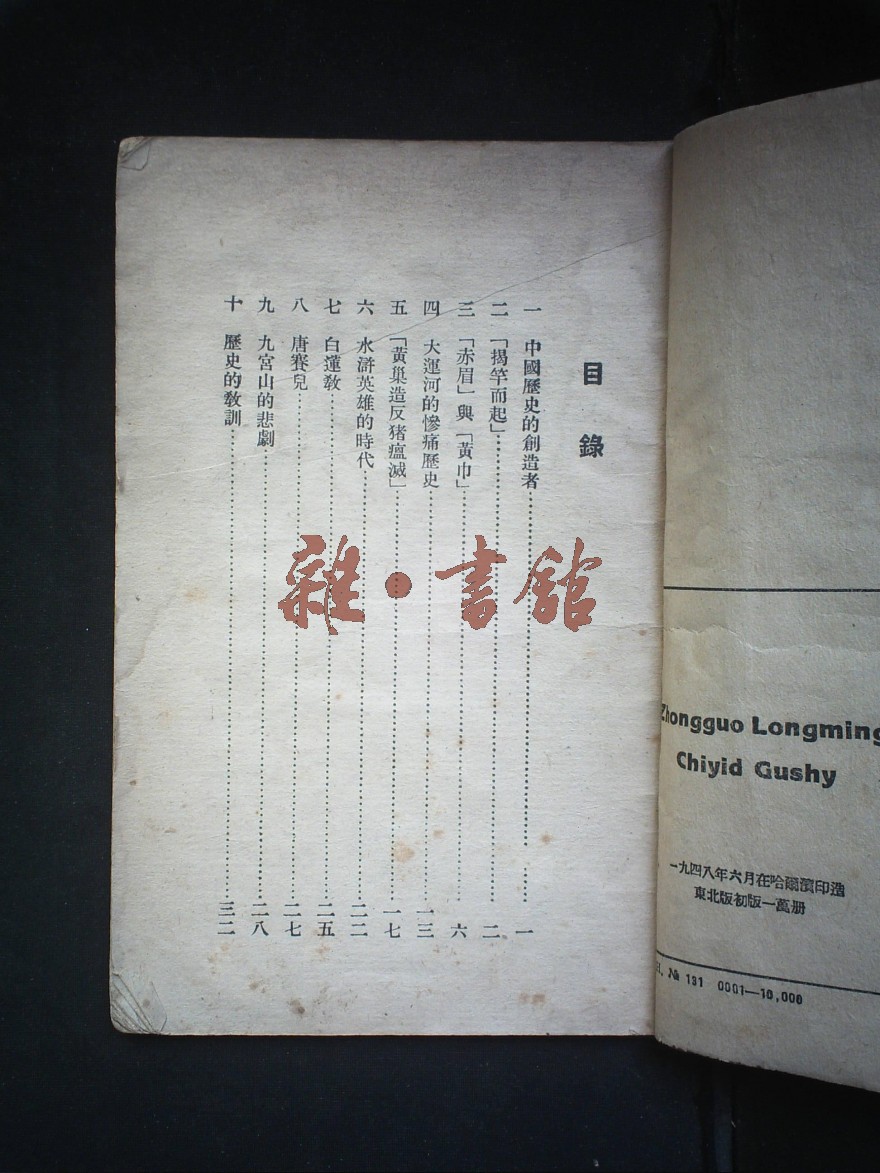 目錄
一 中國歷史的創造者 一
二 「揭竿而起」 二
三 「赤眉」與「黃巾」 六
四 大運河的慘痛歷史 一三
五 「黃巢造反猪瘟滅」 一七
六 水滸英雄的時代 二二
七 白蓮教 二五
八 唐賽兒 二七
九 九宮山的悲劇 二八
十 歷史的教訓 三二
雜·書館
Zhongguo Longming
Chiyid Gushy
一九四八年六月在哈爾濱印造
東北版初版一萬册
№ 131 0001—10,000